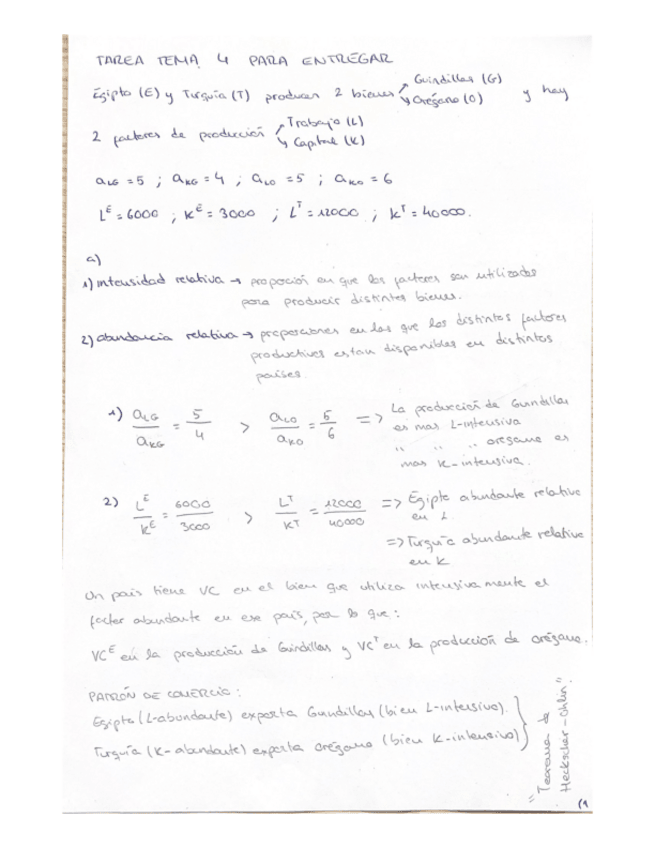 TAREA TEMA 4 PARA ENTREGAR
Egipto (E) y Turquía (T) producen 2 bienes Guindillas (G) Orégano (O) y hay
2 factores de producción Trabajo (L) Capital (K)
aLG = 5 ; aKG = 4 ; aLO = 5 ; aKO = 6
L^E = 6000 ; K^E = 3000 ; L^T = 12000 ; K^T = 40000.
a)
1) intensidad relativa → proporción en que los factores son utilizados
para producir distintos bienes.
2) abundancia relativa → proporciones en las que los distintos factores
productivos estan disponibles en distintos
países.
1) aLG/aKG = 5/4 > aLO/aKO = 5/6 => La producción de Guindillas
es mas L-intensiva
" " " orégano es
mas K-intensiva.
2) L^E/K^E = 6000/3000 > L^T/K^T = 12000/40000 => Egipto abundante relativo
en L
=> Turquía abundante relativo
en K
Un país tiene VC en el bien que utiliza intensivamente el
factor abundante en ese país, por lo que:
VC^E en la producción de Guindillas y VC^T en la producción de orégano.
PATRÓN DE COMERCIO:
Egipto (L-abundante) exporta Guindillas (bien L-intensivo).
Turquía (K-abundante) exporta orégano (bien K-intensivo)
"Teorema de
Heckscher-Ohlin".
(1